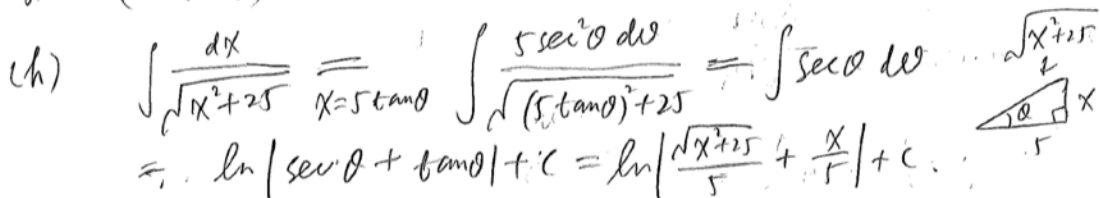 (h) ∫ dx/√(x²+25) = (x=5tanθ) ∫ 5sec²θ dθ/√((5tanθ)²+25) = ∫ secθ dθ √(x²+25) θ x 5
= ln|secθ + tanθ| + c = ln|√(x²+25)/5 + x/5| + c.